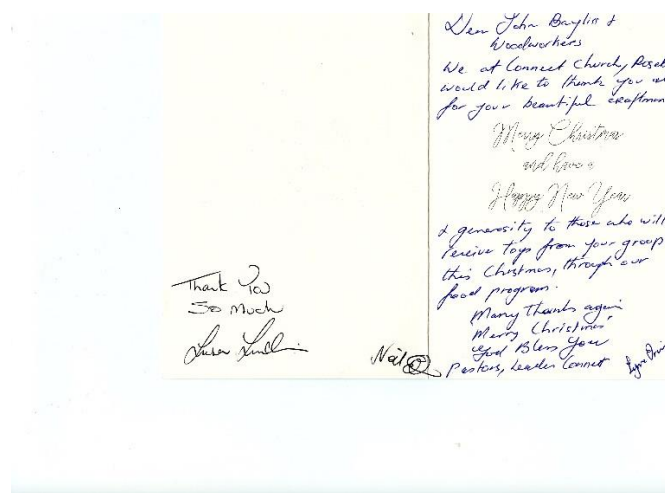 Thank You
So Much
Neil
Dear John Baylis &
Woodworkers
We at Connect Church,
would like to thank you
for your beautiful
Merry Christmas
and have a
Happy New Year
& generosity to those who will
receive toys from your group
this Christmas, through our
food program.
Many Thanks again
Merry Christmas
God Bless You
Pastors, Leader Connect